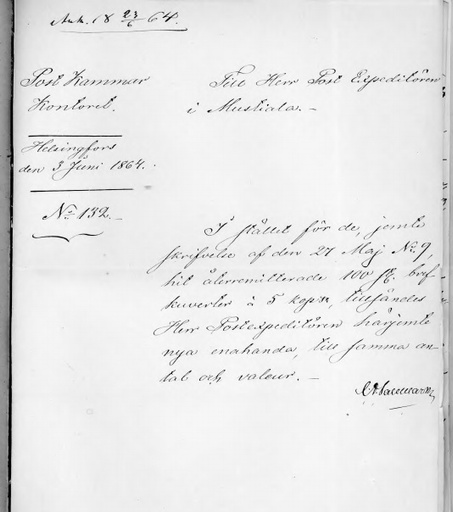 Ank. 18 23/6 64.
Post Kammar
Kontoret.
Helsingfors
den 3 Juni 1864.
No 132.
Till Herr Post Expeditören
i Mustiala. –
I stället för de, jemte
skrifvelse af den 27 Maj No 9,
hit återremitterade 100 st. bref
kuverter à 5 kop:n, tillsändes
Herr Postexpeditören härjemte
nya enahanda, till samma an-
tal och valeur. –